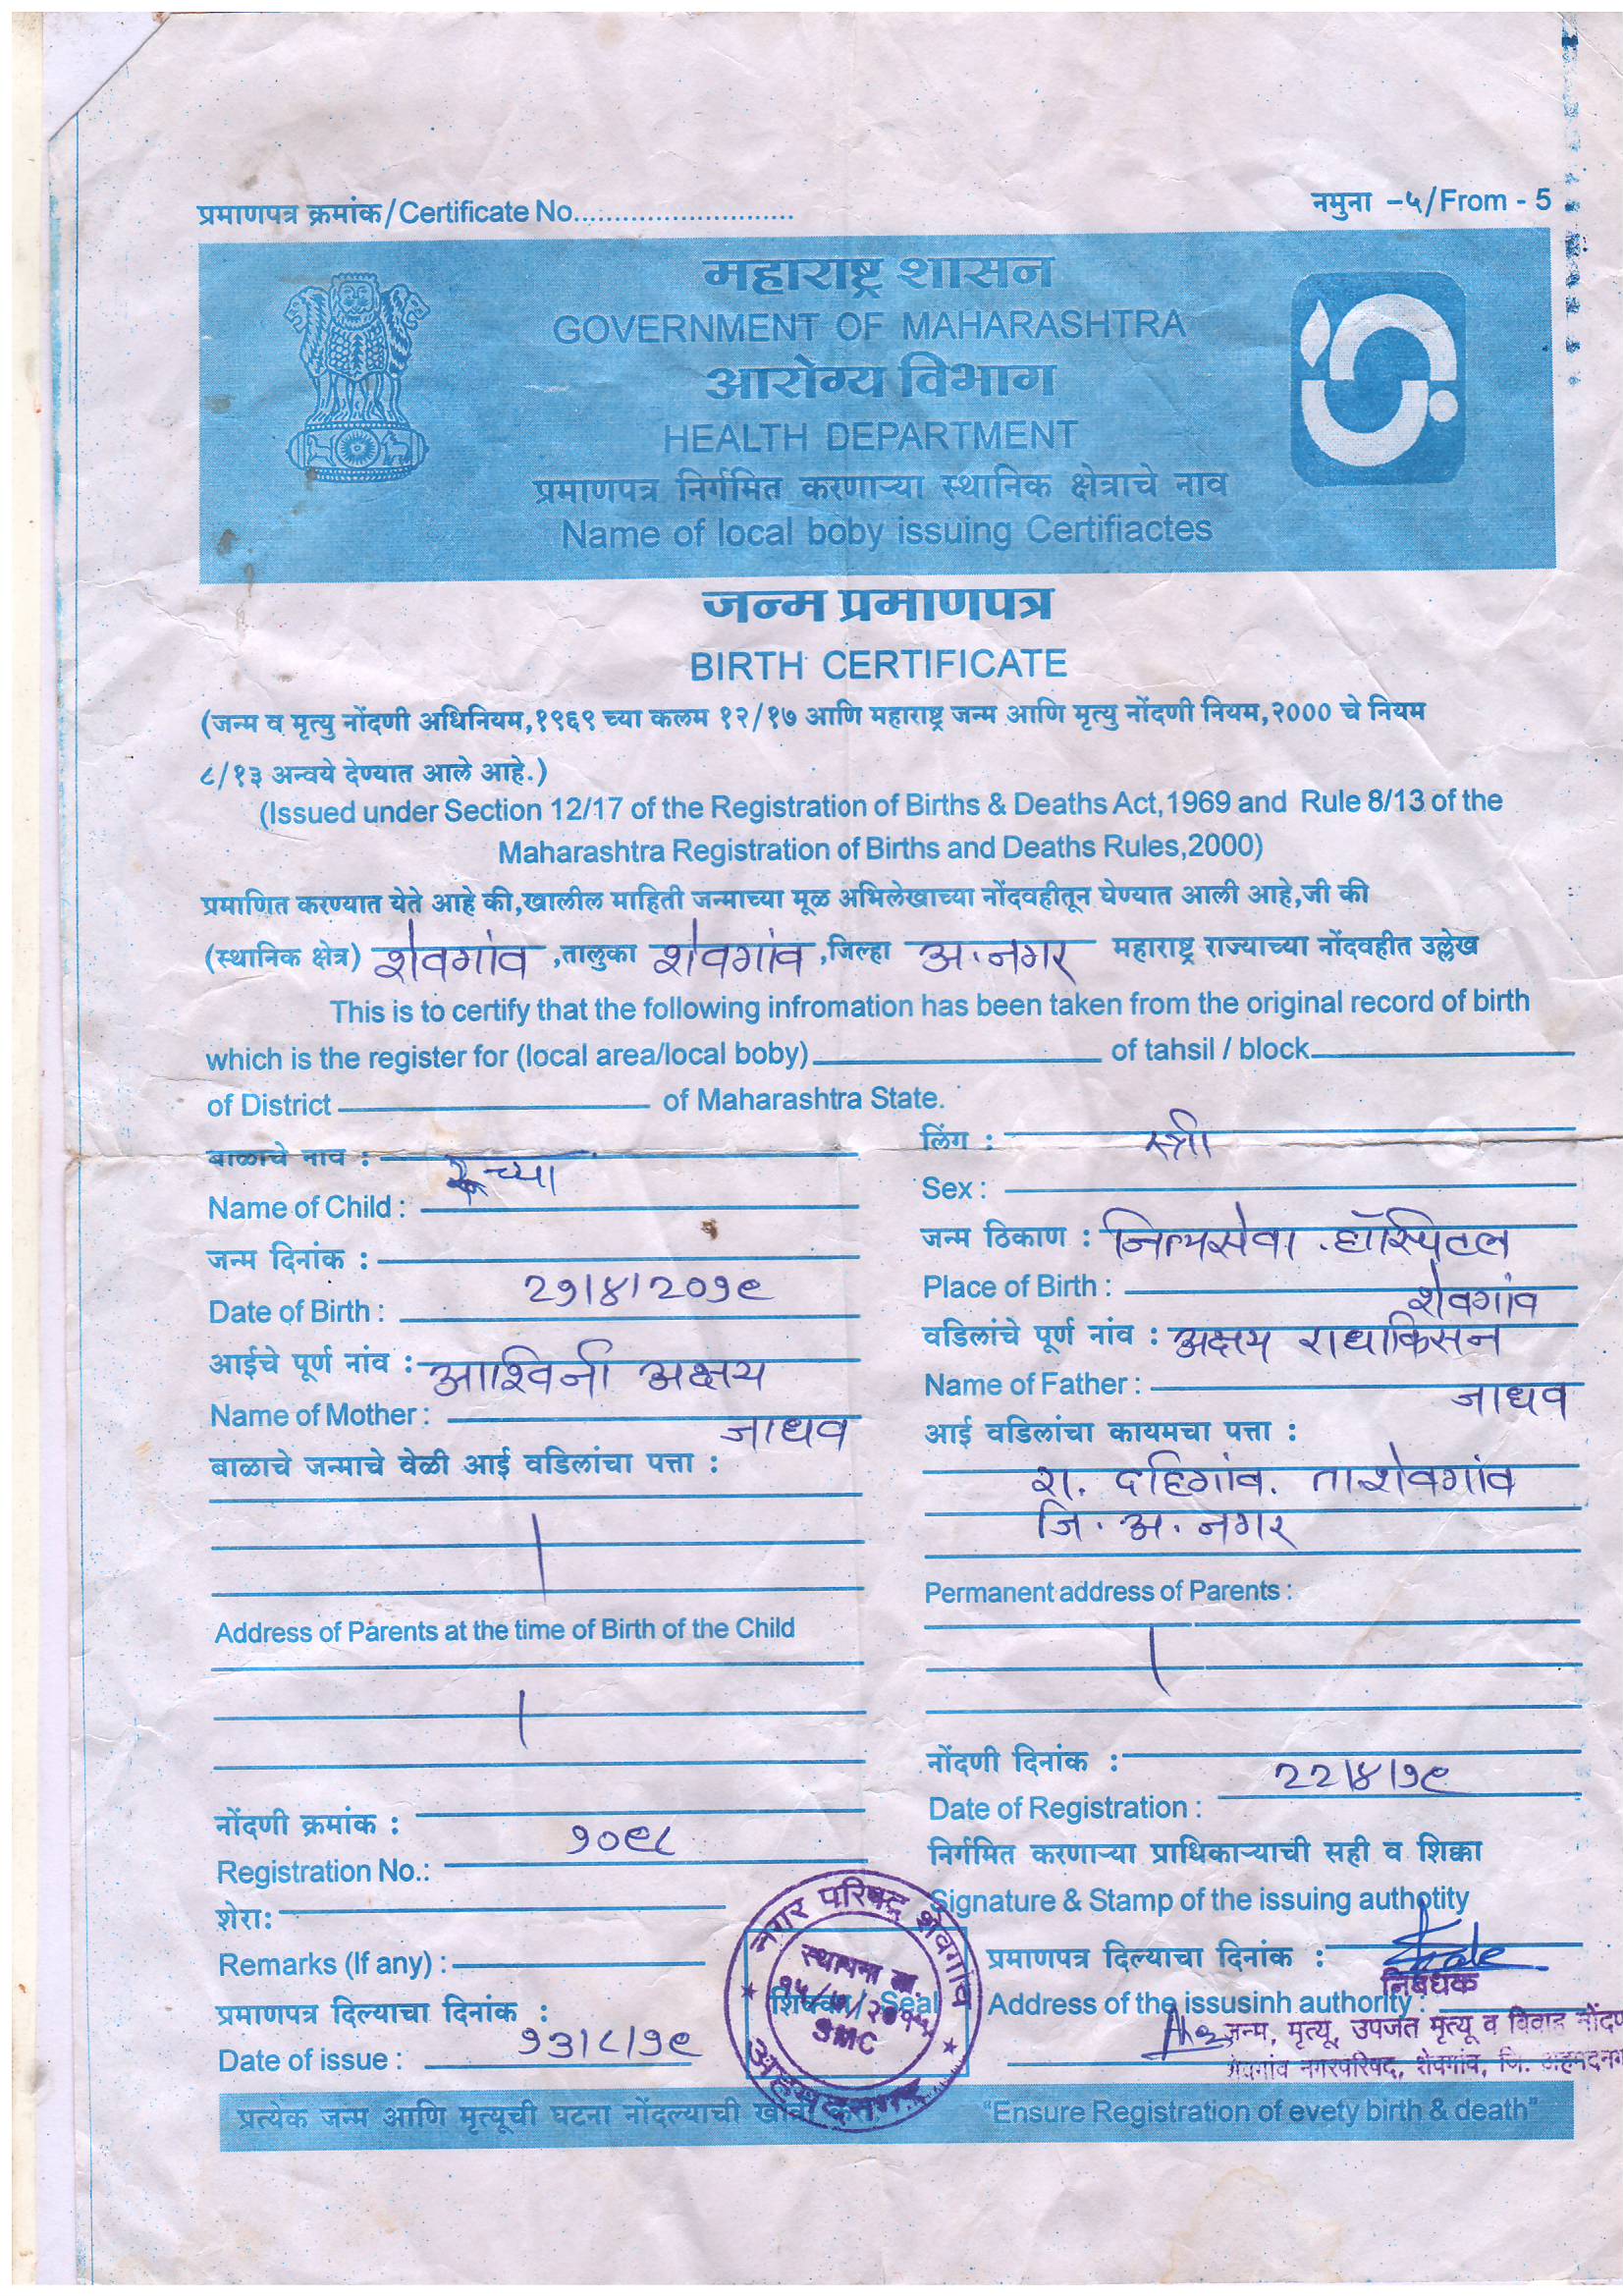 प्रमाणपत्र क्रमांक/Certificate No............................
नमुना -५/From - 5
महाराष्ट्र शासन
GOVERNMENT OF MAHARASHTRA
आरोग्य विभाग
HEALTH DEPARTMENT
प्रमाणपत्र निर्गमित करणाऱ्या स्थानिक क्षेत्राचे नाव
Name of local boby issuing Certifiactes
जन्म प्रमाणपत्र
BIRTH CERTIFICATE
(जन्म व मृत्यु नोंदणी अधिनियम,१९६९ च्या कलम १२/१७ आणि महाराष्ट्र जन्म आणि मृत्यु नोंदणी नियम,२००० चे नियम
८/१३ अन्वये देण्यात आले आहे.)
(Issued under Section 12/17 of the Registration of Births & Deaths Act,1969 and Rule 8/13 of the
Maharashtra Registration of Births and Deaths Rules,2000)
प्रमाणित करण्यात येते आहे की,खालील माहिती जन्माच्या मूळ अभिलेखाच्या नोंदवहीतून घेण्यात आली आहे,जी की
(स्थानिक क्षेत्र) शेवगांव ,तालुका शेवगांव ,जिल्हा अ.नगर महाराष्ट्र राज्याच्या नोंदवहीत उल्लेख
This is to certify that the following infromation has been taken from the original record of birth
which is the register for (local area/local boby) of tahsil / block
of District of Maharashtra State.
बाळाचे नाव :
च्या
Name of Child :
लिंग : स्त्री
Sex :
जन्म दिनांक :
२१/४/२०१९
Date of Birth :
जन्म ठिकाण : नित्यसेवा हॉस्पिटल
Place of Birth : शेवगांव
आईचे पूर्ण नांव : आश्विनी अक्षय
Name of Mother : जाधव
वडिलांचे पूर्ण नांव : अक्षय राधाकिसन
Name of Father : जाधव
बाळाचे जन्माचे वेळी आई वडिलांचा पत्ता :
Address of Parents at the time of Birth of the Child
आई वडिलांचा कायमचा पत्ता :
रा. दहिगांव. ता.शेवगांव
जि. अ. नगर
Permanent address of Parents :
नोंदणी क्रमांक :
१०९८
Registration No.:
नोंदणी दिनांक :
२२/४/१९
Date of Registration :
शेरा:
Remarks (If any) :
प्रमाणपत्र दिल्याचा दिनांक :
१३/८/१९
Date of issue :
निर्गमित करणाऱ्या प्राधिकाऱ्याची सही व शिक्का
Signature & Stamp of the issuing authotity
प्रमाणपत्र दिल्याचा दिनांक :
निबंधक
Address of the issusinh authority :
जन्म, मृत्यू, उपजत मृत्यू व विवाह नोंदणी
शेवगांव नगरपरिषद, शेवगांव, जि. अहमदनगर
नगर परिषद शेवगांव
स्थापना ता.
शिक्का / Seal
SMC
अहमदनगर
प्रत्येक जन्म आणि मृत्यूची घटना नोंदल्याची खात्री करा
"Ensure Registration of evety birth & death"